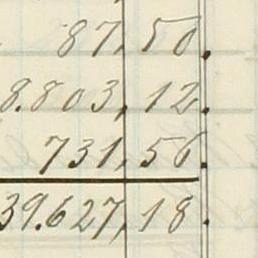 87,50.
8.803,12.
731,56.
39.627,18.